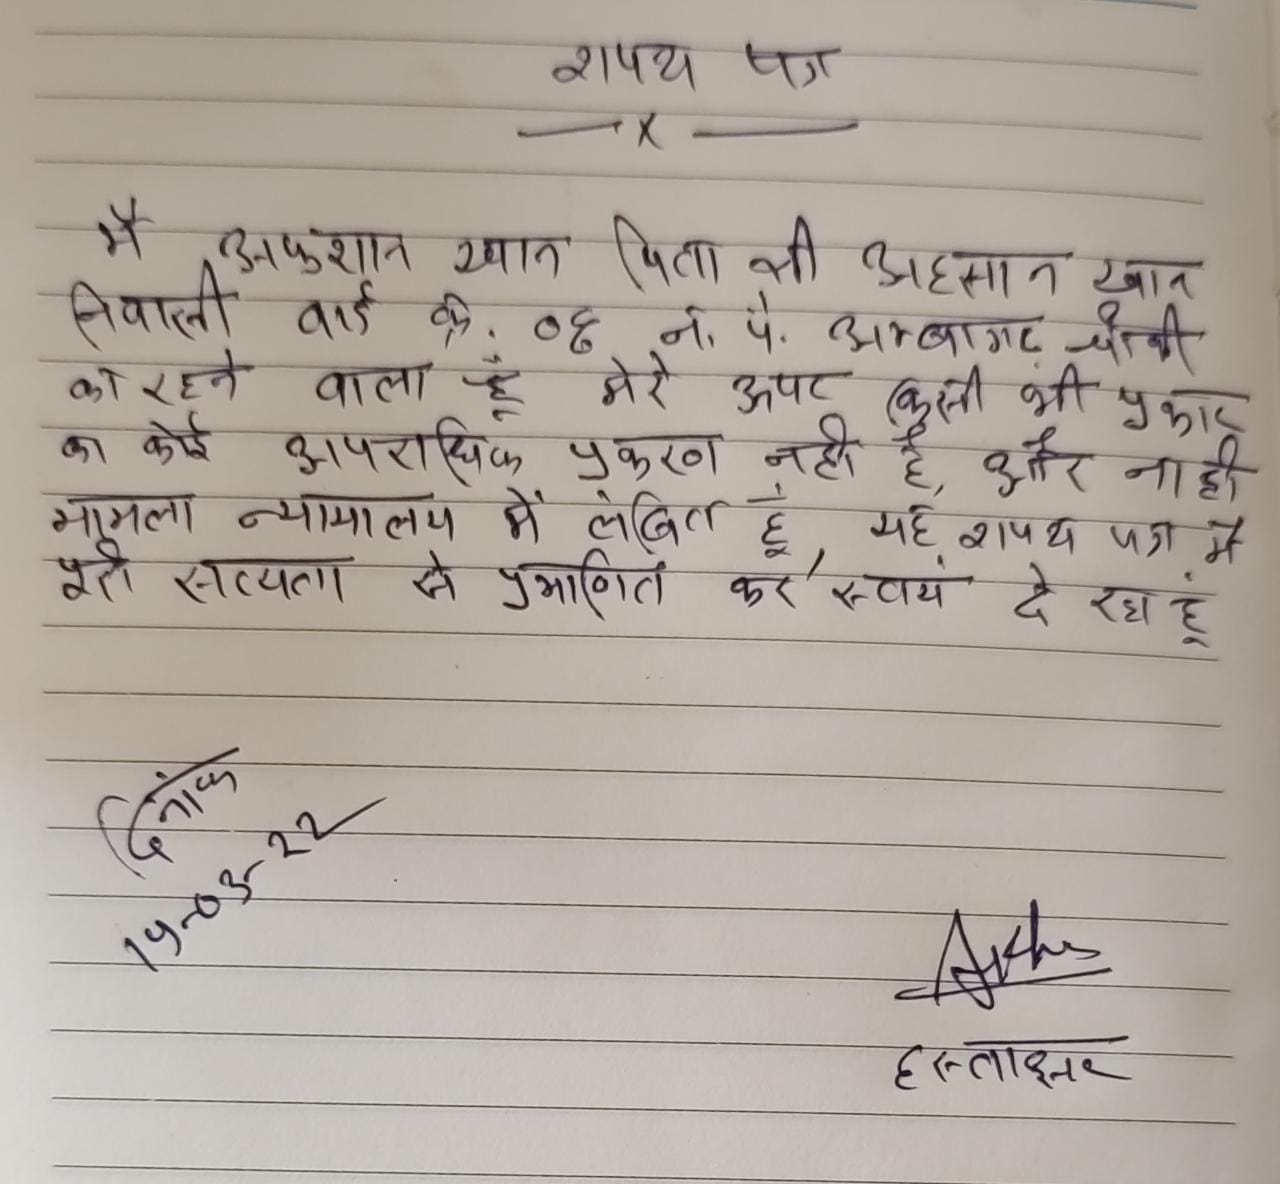 शपथ पत्र
— x —
मैं अफशान खान पिता श्री अहसान खान
निवासी वार्ड क्रं. 06 न. पं. अम्बागढ़ चौकी
का रहने वाला हूँ मेरे ऊपर किसी भी प्रकार
का कोई आपराधिक प्रकरण नहीं है, और ना ही
मामला न्यायालय में लंबित हूं, यह शपथ पत्र मैं
पूरी सत्यता से प्रमाणित कर स्वयं दे रहा हूं
दिनांक
19-03-22
हस्ताक्षर